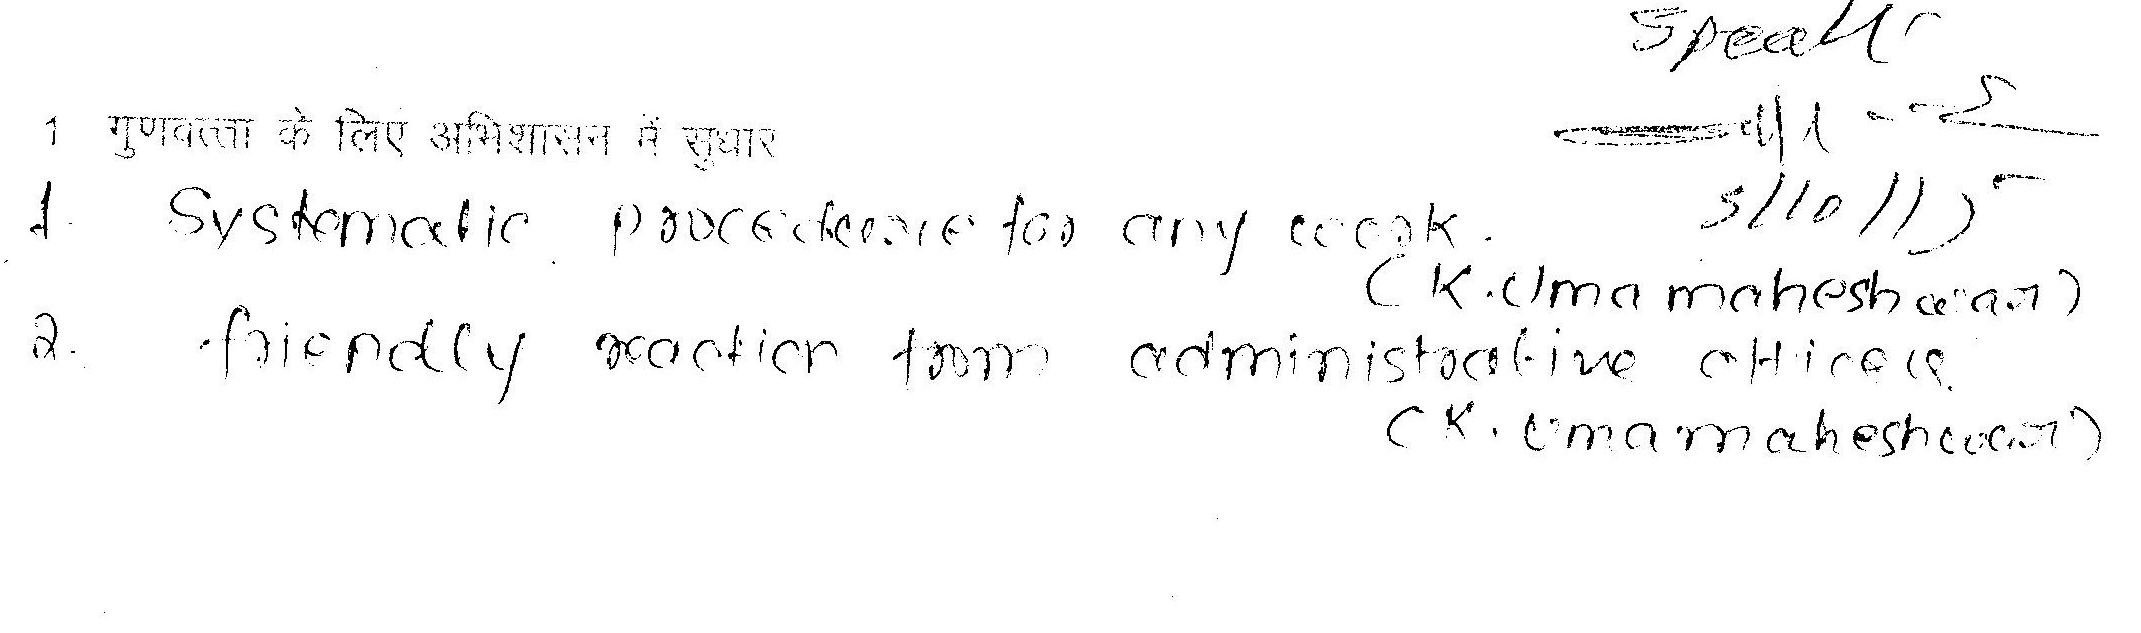 Speak
1 गुणवत्ता के लिए अभिशासन में सुधार
1. Systematic procedure for any work.
(K. Umamaheshwari)
2. friendly reaction from administrative officers.
(K. Umamaheshwari)